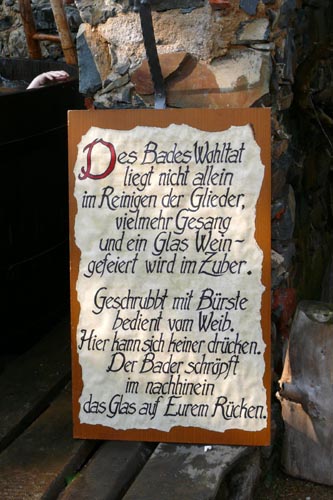 Des Bades Wohltat
liegt nicht allein
im Reinigen der Glieder,
vielmehr Gesang
und ein Glas Wein -
gefeiert wird im Zuber.
Geschrubbt mit Bürste
bedient vom Weib.
Hier kann sich keiner drücken.
Der Bader schröpft
im nachhinein
das Glas auf Eurem Rücken.